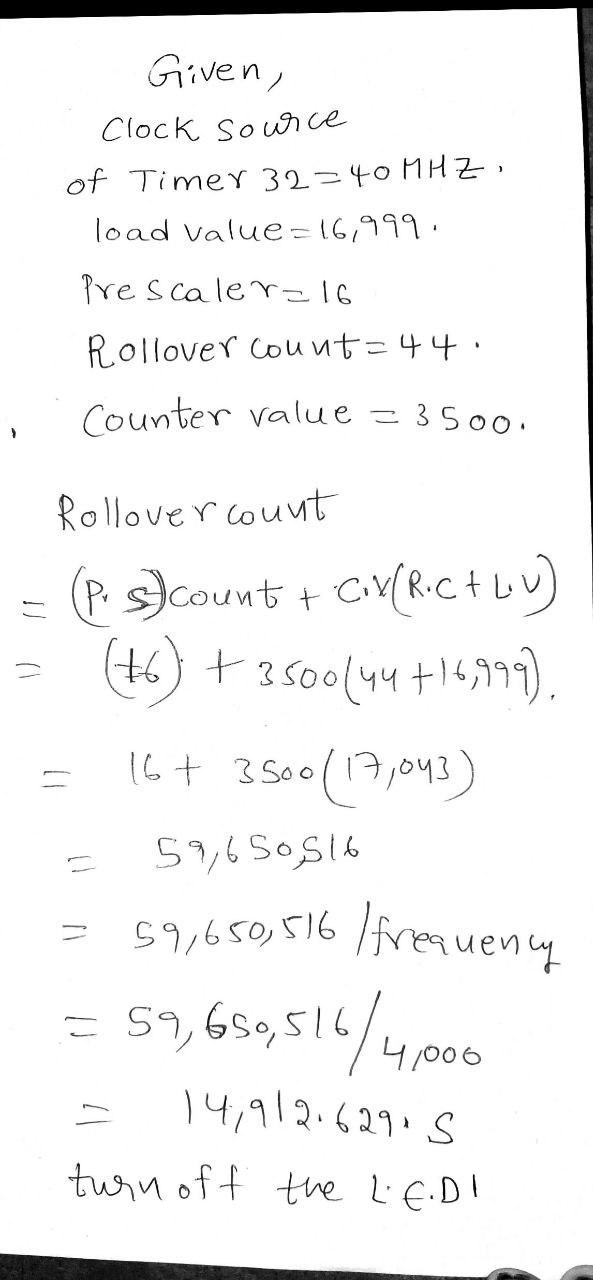 Given,
Clock source
of Timer 32=40 MHZ.
load value=16,999.
Prescaler=16
Rollover count=44.
Counter value = 3500.
Rollover count
= (P. S)count + C.V(R.C + L.V)
= (16) + 3500(44+16,999).
= 16 + 3500(17,043)
= 59,650516
= 59,650,516 /frequency
= 59,650,516/4,000
= 14,912.629. S
turn off the L.E.D1